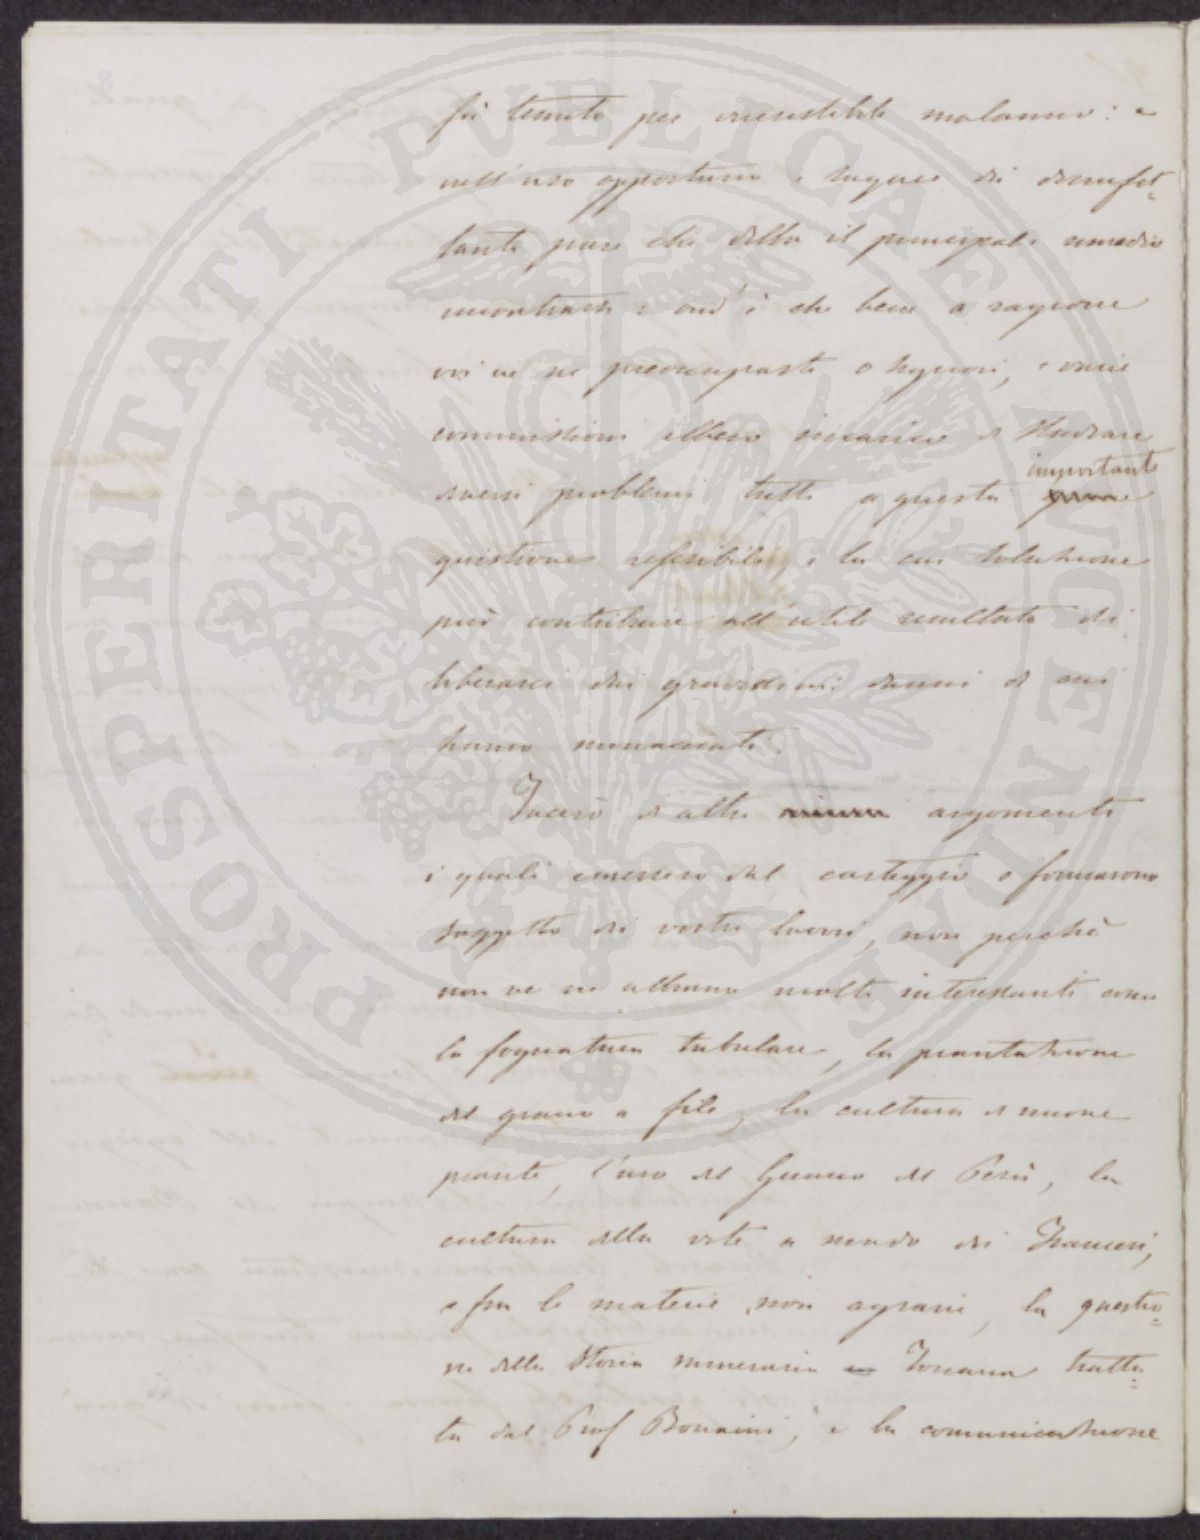 fù temuto per irresistibile malanno: e
nell'uso opportuno e sagace di disinfet=
tanti pare che debba il principale rimedio
incontrarsi: ond'è che bene a ragione
voi ve ne preoccupaste o Signori, e varie
commissioni ebbero incarico di studiare
diversi problemi tutti a questa importante
quistione referibili, e la cui soluzione
può contribuire all'utile resultato di
liberarci dai gravissimi danni di cui
siamo minacciati.
Tacerò di altri argomenti
i quali emersero dal carteggio o formarono
soggetto dei vostri lavori, non perchè
non ve ne abbiano molti interessanti come
la fognatura tubulare, la piantazione
del grano a file, la cultura di nuove
piante, l'uso del Guano del Perù, la
cultura della vite a modo dei Francesi,
e fra le materie non agrarie, la questio=
ne della Storia mineraria Toscana tratta=
ta dal Prof Bonaini, e la comunicazione
PROSPERITATI PVBLICAE AVGENDAE